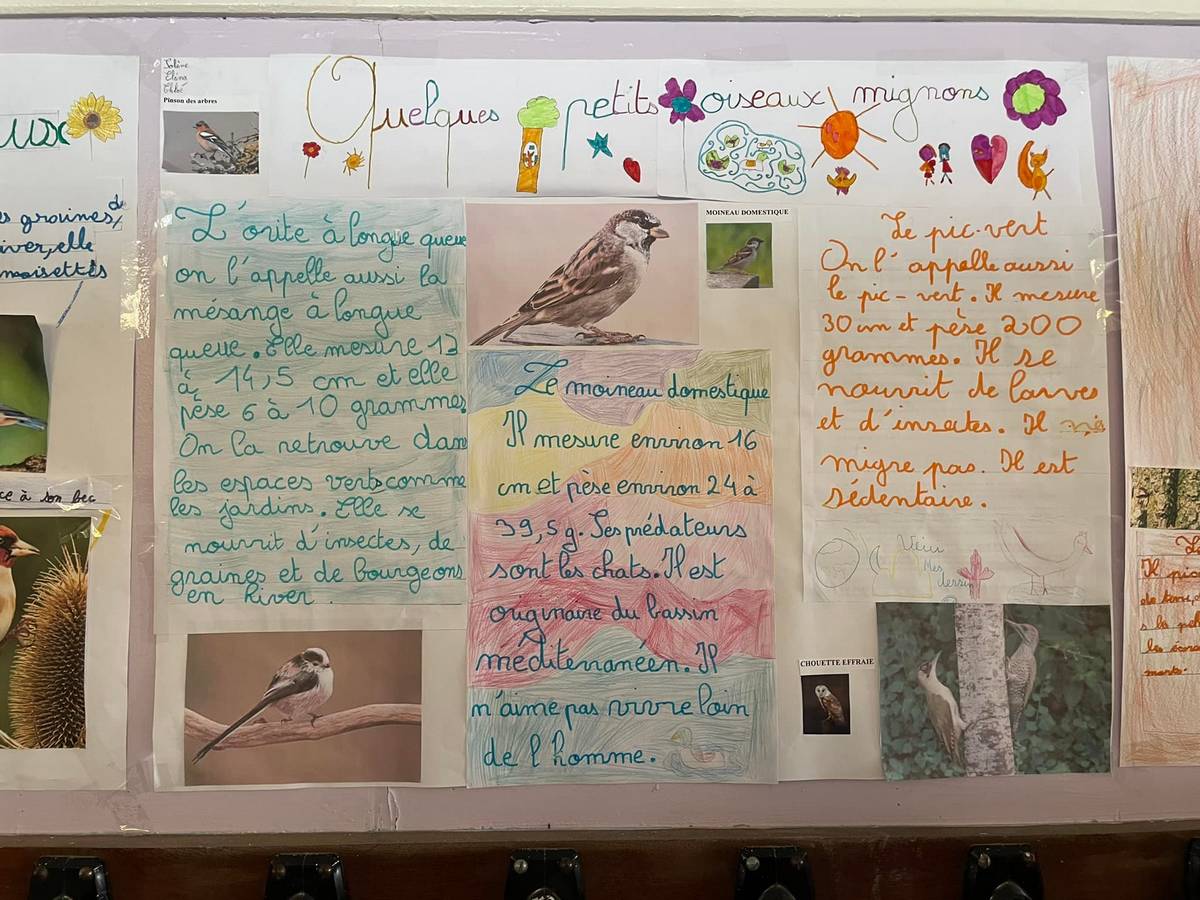 ux
s graines, de
iver, elle
noisettes
ce à son bec
Solène
Elina
Chloé
Pinson des arbres
Quelques petits oiseaux mignons
L'orite à longue queue
on l'appelle aussi la
mésange à longue
queue. Elle mesure 13
à 14,5 cm et elle
pèse 6 à 10 grammes.
On la retrouve dans
les espaces verts comme
les jardins. Elle se
nourrit d'insectes, de
graines et de bourgeons
en hiver.
MOINEAU DOMESTIQUE
Le moineau domestique
Il mesure environ 16
cm et pèse environ 24 à
39,5 g. Ses prédateurs
sont les chats. Il est
originaire du bassin
méditerranéen. Il
n'aime pas vivre loin
de l'homme.
Le pic-vert
On l'appelle aussi
le pic-vert. Il mesure
30 cm et pèse 200
grammes. Il se
nourrit de larves
et d'insectes. Il
migre pas. Il est
sédentaire.
CHOUETTE EFFRAIE